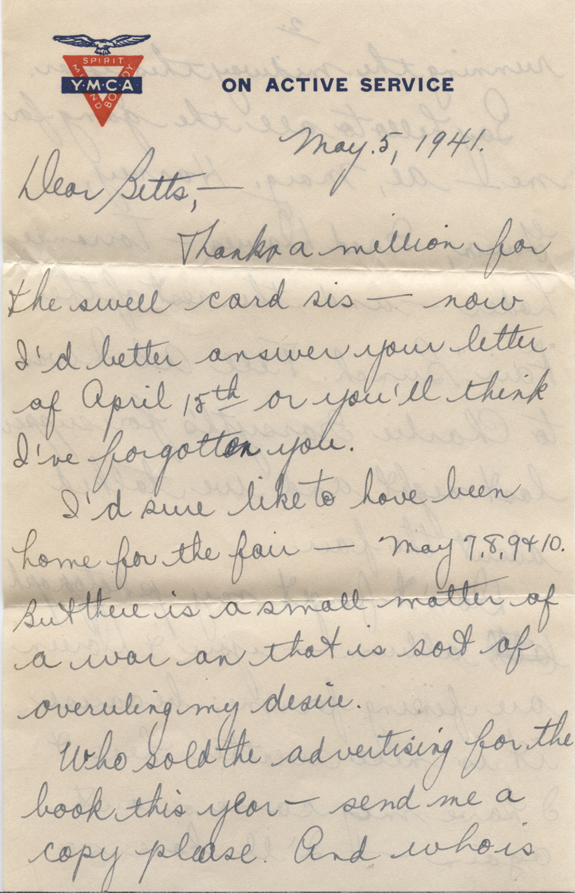 SPIRIT
MIND
BODY
Y·M·C·A
ON ACTIVE SERVICE
May. 5, 1941.
Dear Betts,—
Thanks a million for
the swell card sis — now
I'd better answer your letter
of April 15th or you'll think
I've forgotten you.
I'd sure like to have been
home for the fair — May 7,8,9+10.
But there is a small matter of
a war on that is sort of
overuling my desire.
Who sold the advertising for the
book this year — send me a
copy please. And who is